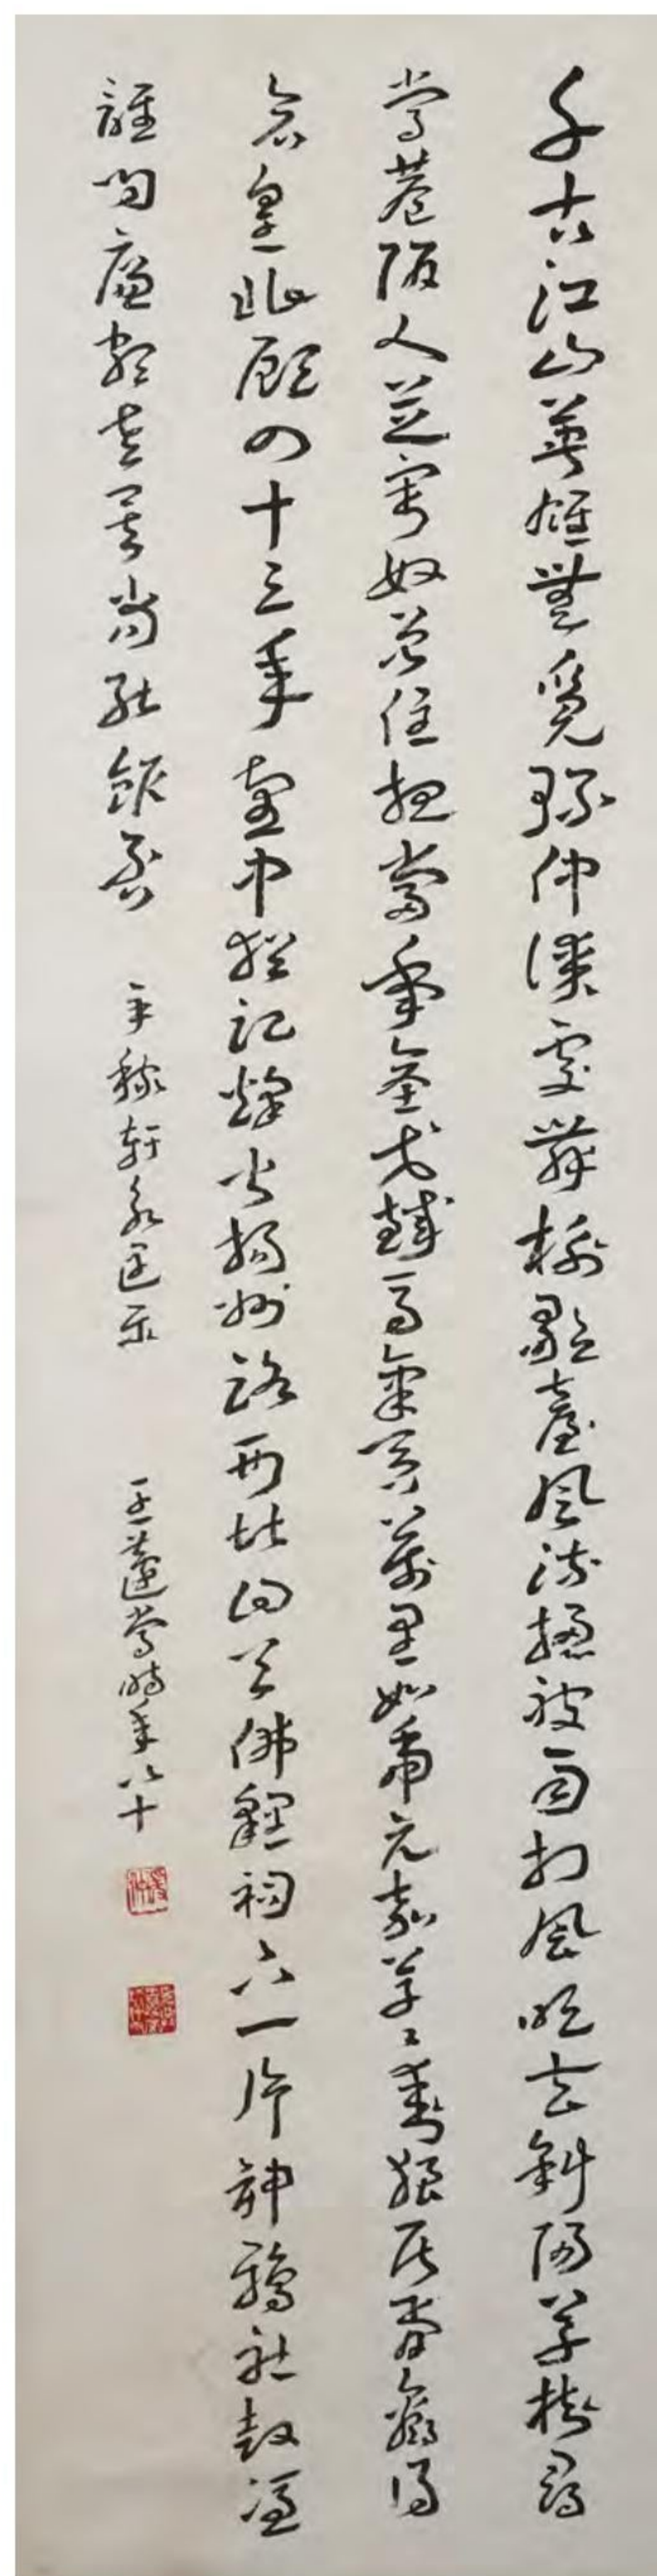 千古江山英雄無覓孫仲謀處舞榭歌臺風流總被雨打風吹去斜陽草樹尋
常巷陌人道寄奴曾住想當年金戈鐵馬氣吞萬里如虎元嘉草々封狼居胥贏得
倉皇北顧四十三年望中猶記烽火揚州路可堪回首佛貍祠下一片神鴉社鼓憑
誰問廉頗老矣尚能飯否 辛稼軒永遇樂 王蘧常時年八十